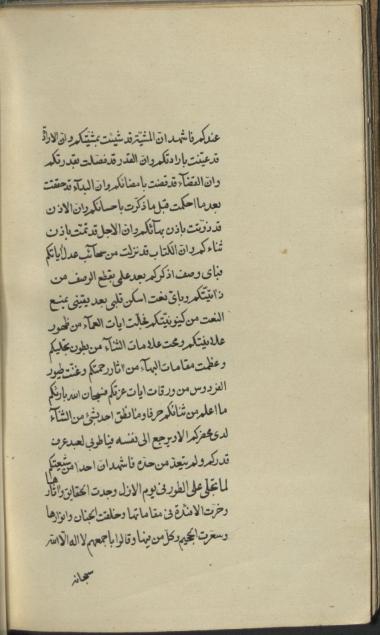 عندكم فاشهد ان المشية قد شيئت بمشيتكم وان الارادة
قد عينت بارادتكم وان القدر قد فصلت بقدرتكم
وان القضآء قد قضت بامضائكم وان البدآء قد حققت
بعد ما احكمت قبل ما ذكرت باحسانكم وان الاذن
قد ذوتت باذن بهائكم وان الاجل قد تمت باذن
ثنائكم وان الكتاب قد نزلت من سحائب عدل اياتكم
فباى وصف اذكركم بعد علمى بقطع الوصف من
ذاتيتكم وباى نعت اسكن قلبى بعد يقينى بمنع
النعت من كينونيتكم تجلت ايات العمآء من ظهور
علانيتكم ومحت علامات الثنآء من بطون تجليكم
وعظمت مقامات البهآء من اثار رحمتكم وغنت طيور
الفردوس من ورقات ايات عزتكم فسبحان الله بارئكم
ما اعلم من ثنائكم حرفا وما نطق احد بشئ من الثنآء
لدى محضركم الا ويرجع الى نفسه فيا طوبى لعبد عرف
قدركم ولم يتعد من حده فاشهد ان احدا من شيعتكم
لما تجلى على الطور فى يوم الازل وجدت الحقايق واثارها
وخرت الافئدة فى مقاماتها وخلقت الجنان وانوارها
وسعرت الجحيم وكل من فيها وقالوا باجمعهم لا اله الا الله
سبحانه